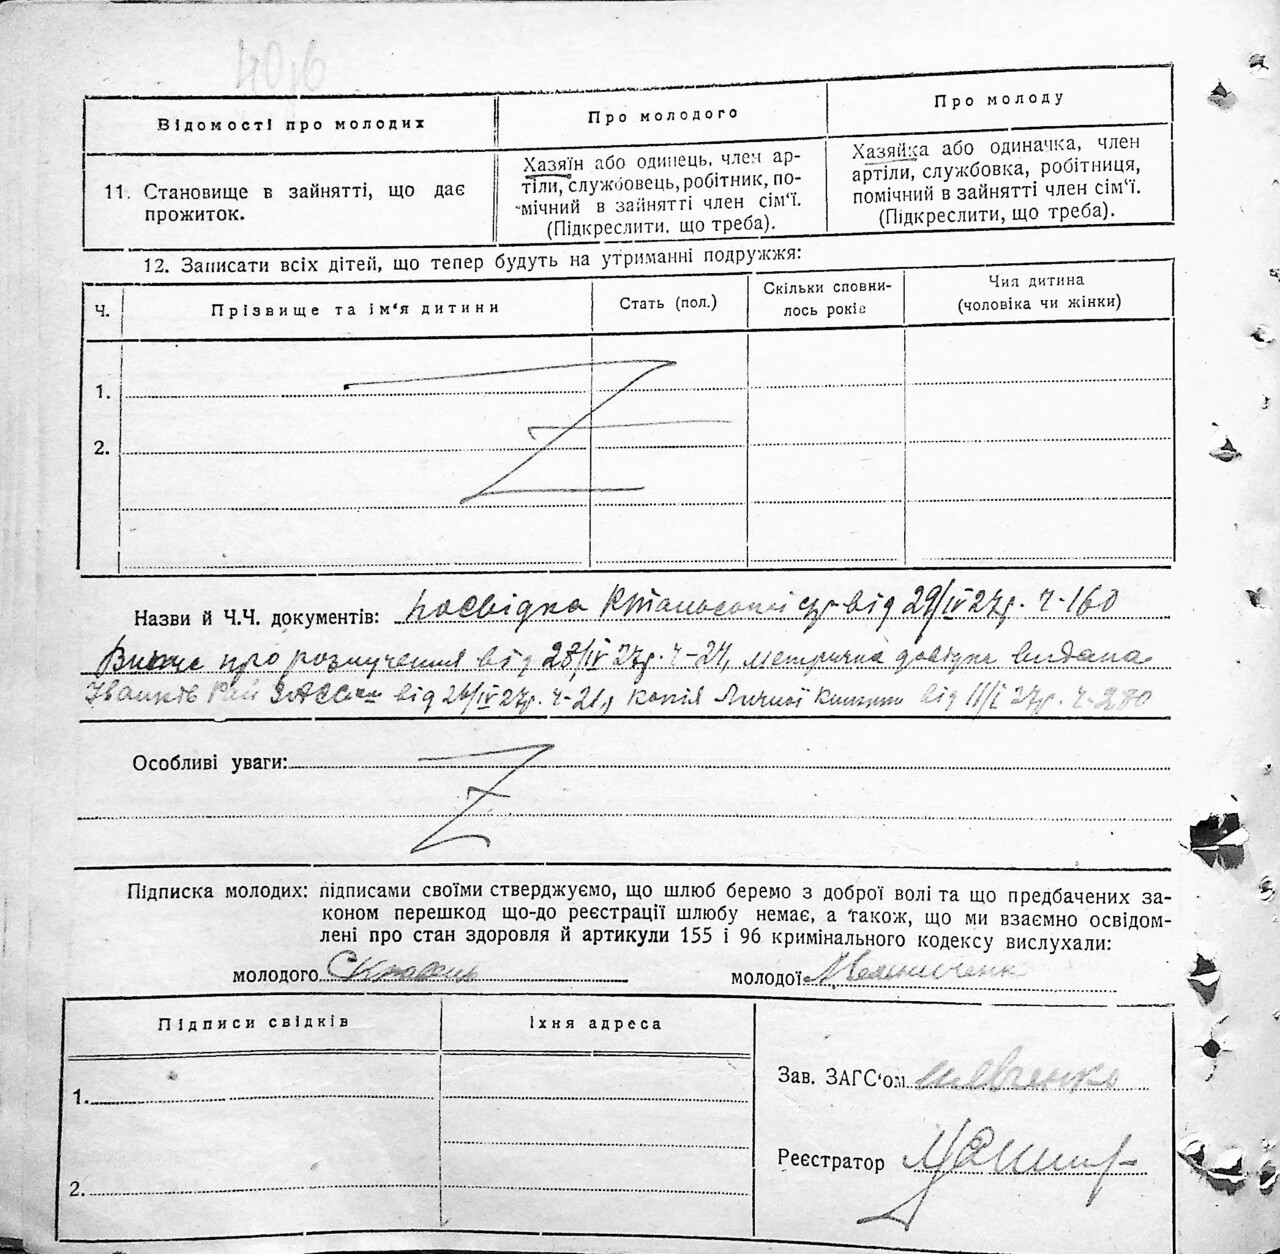 40зв
Відомості про молодих
Про молодого
Про молоду
11. Становище в зайнятті, що дає
прожиток.
Хазяїн або одинець, член ар-
тіли, службовець, робітник, по-
мічний в зайнятті член сім'ї.
(Підкреслити, що треба).
Хазяйка або одиначка, член
артіли, службовка, робітниця,
помічний в зайнятті член сім'ї.
(Підкреслити, що треба).
12. Записати всіх дітей, що тепер будуть на утриманні подружжя:
Ч.
Прізвище та ім'я дитини
Стать (пол.)
Скільки сповни-
лось років
Чия дитина
(чоловіка чи жінки)
1.
2.
Назви й Ч.Ч. документів: посвідка від 29/IV 27р. ч-160
Витяг про розлучення від 28/IV 27р. ч-24, метрична довідка видана
Іванків Рай ЗАГСом від 26/IV 27р. ч-21, копія від 11/I 27р. ч-280
Особливі уваги:
Підписка молодих: підписами своїми стверджуємо, що шлюб беремо з доброї волі та що предбачених за-
коном перешкод що-до реєстрації шлюбу немає, а також, що ми взаємно освідом-
лені про стан здоровля й артикули 155 і 96 кримінального кодексу вислухали:
молодого
молодої
Підписи свідків
Їхня адреса
1.
2.
Зав. ЗАГС'ом
Реєстратор